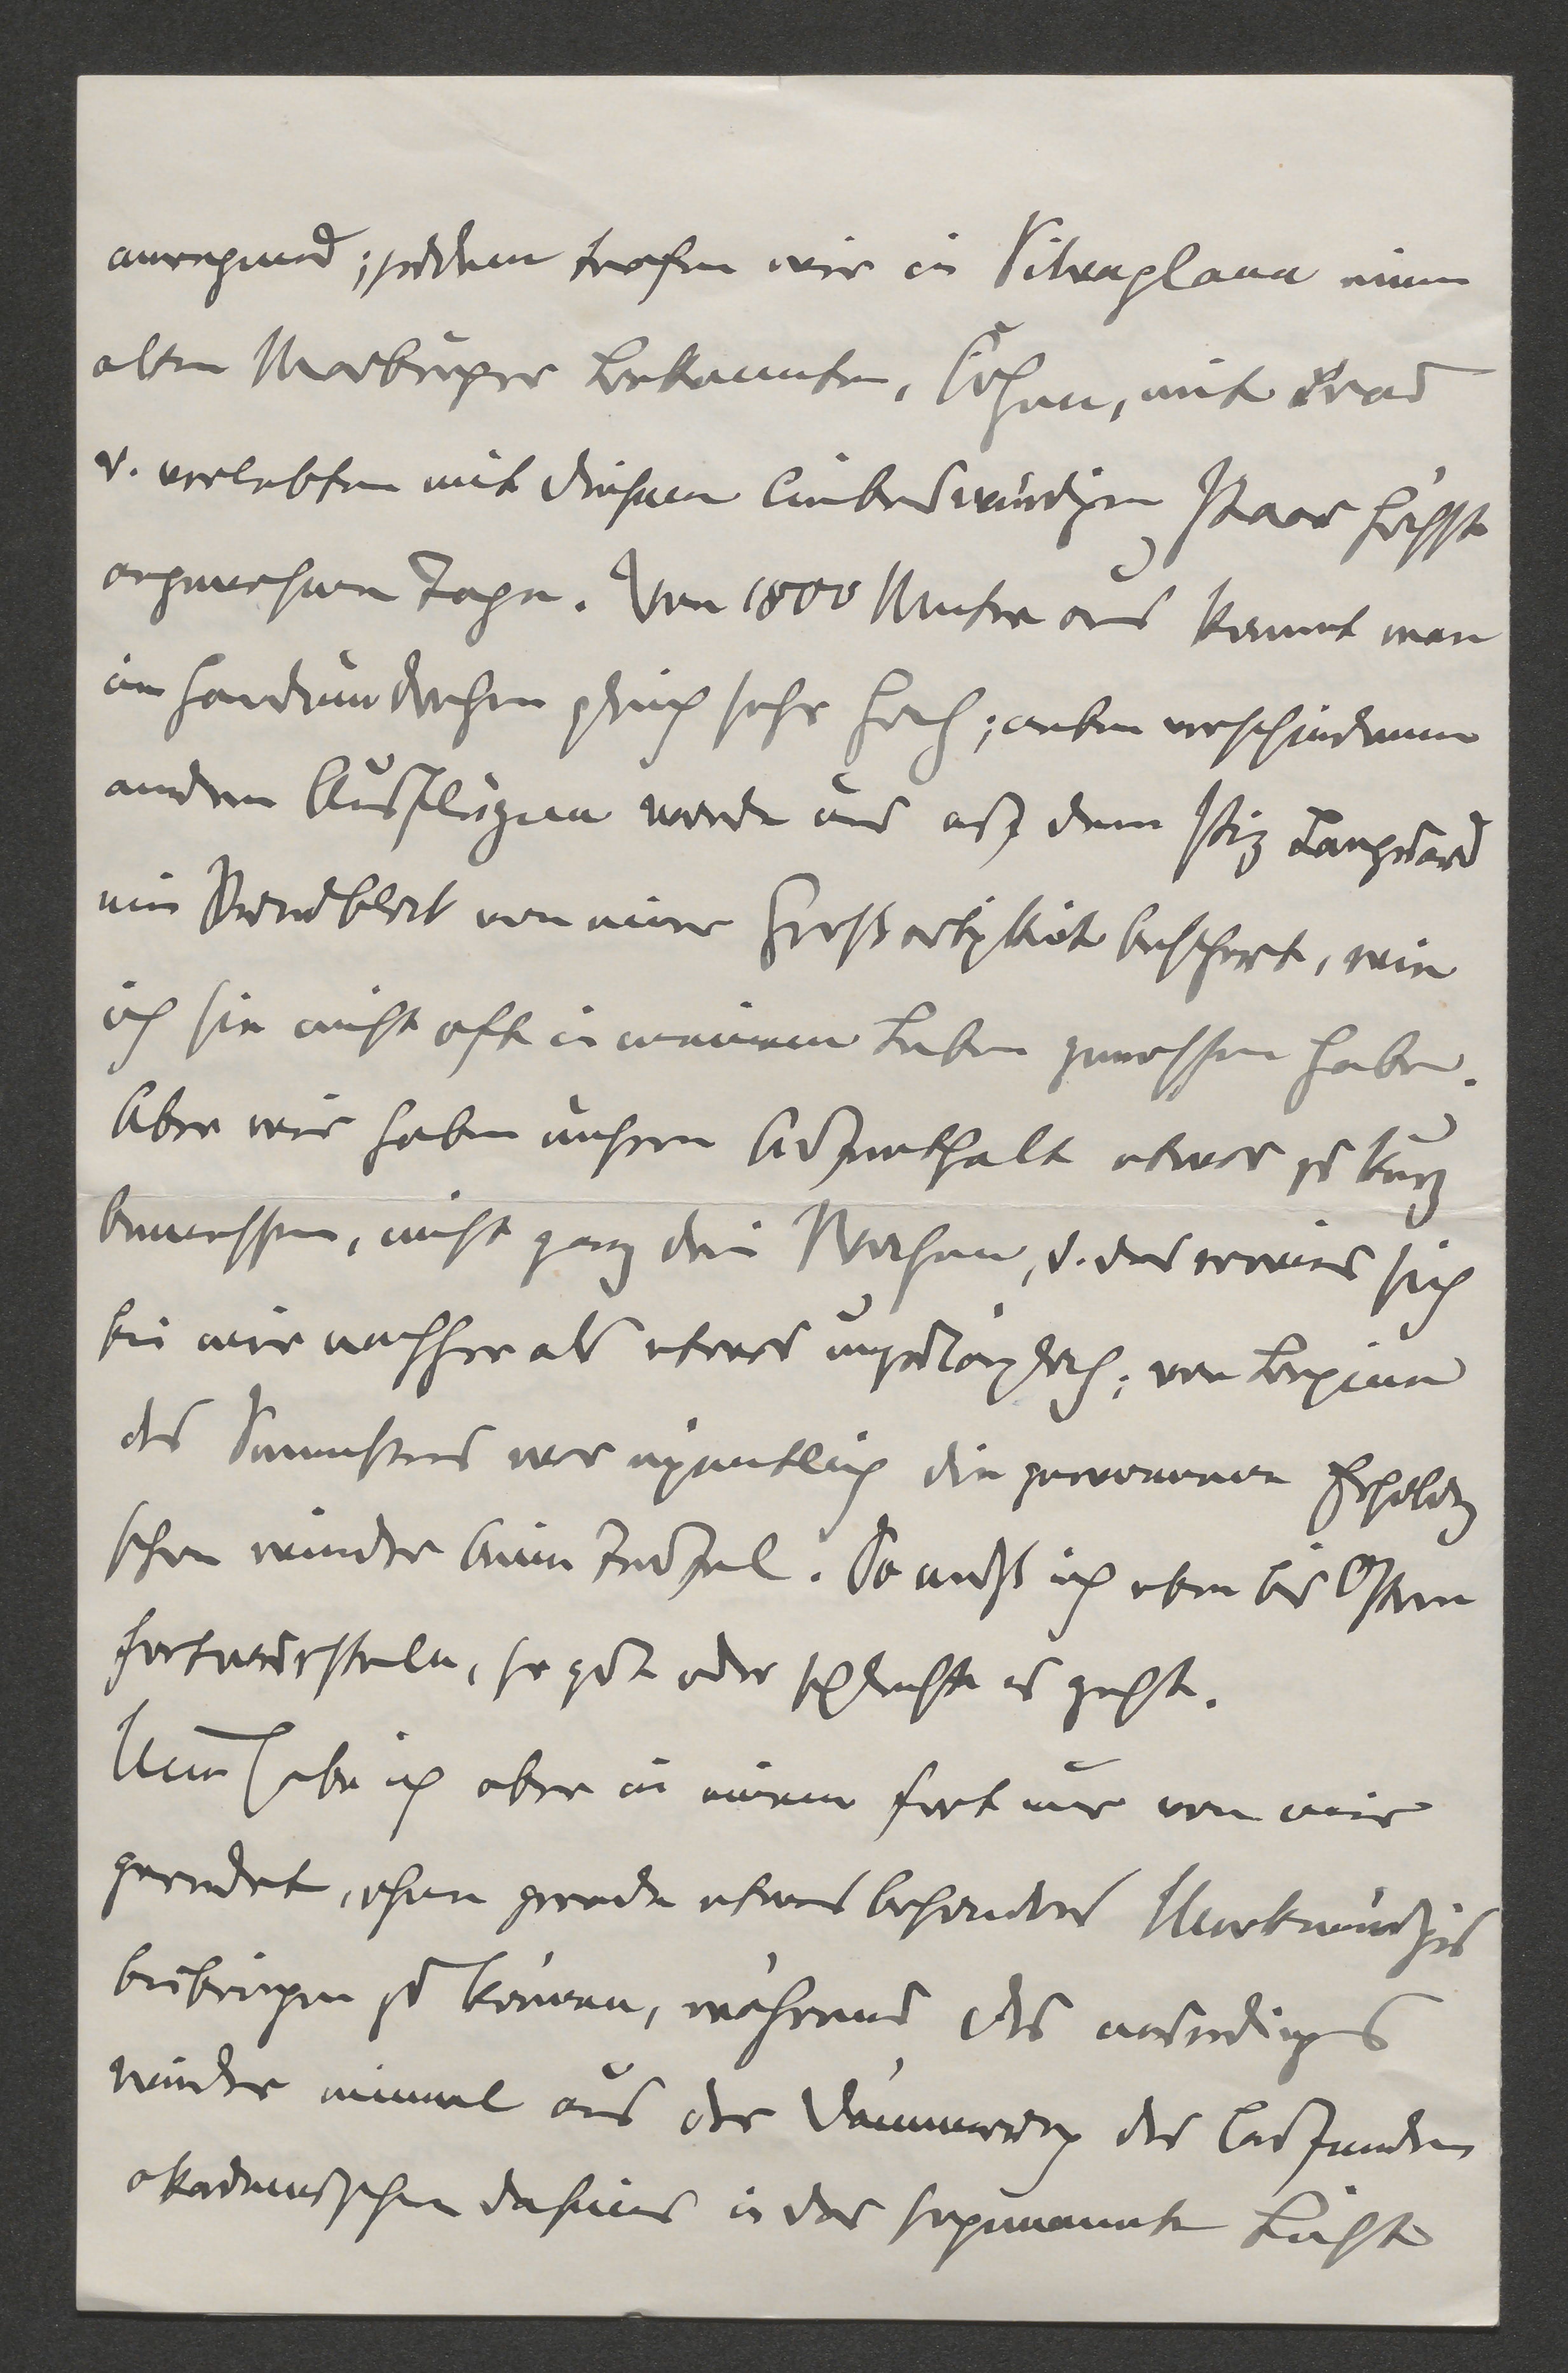 anregend; zudem trafen wir in Silvaplana einen
alten Marburger Bekannten, Cohen, mit Frau
u. verlebten mit diesem liebenswürdigen Paar höchst
angenehme Tage. Von 1800 Meter aus kommt man
im Handumdrehen gleich sehr hoch; neben verschiedenen
andern Ausflügen wurde uns auf dem Piz Languard
ein Rundblick von einer Großartigkeit beschert, wie
ich sie nicht oft in meinem Leben genossen habe.
Aber wir haben unsern Aufenthalt etwas zu kurz
bemessen, nicht ganz drei Wochen, u. das erwies sich
bei mir nachher als etwas unzulänglich; vor Beginn
des Semesters war eigentlich die gewonnene Erholung
schon wieder beim Teufel. So muß ich eben bis Ostern
fortwursteln, so gut oder schlecht es geht.
Nun habe ich aber in einem fort nur von mir
geredet, ohne gerade etwas besonders Merkwürdiges
beibringen zu können, während Du neuerdings
wieder einmal aus der Dämmerung des laufenden
akademischen Daseins in das sogenannte Licht